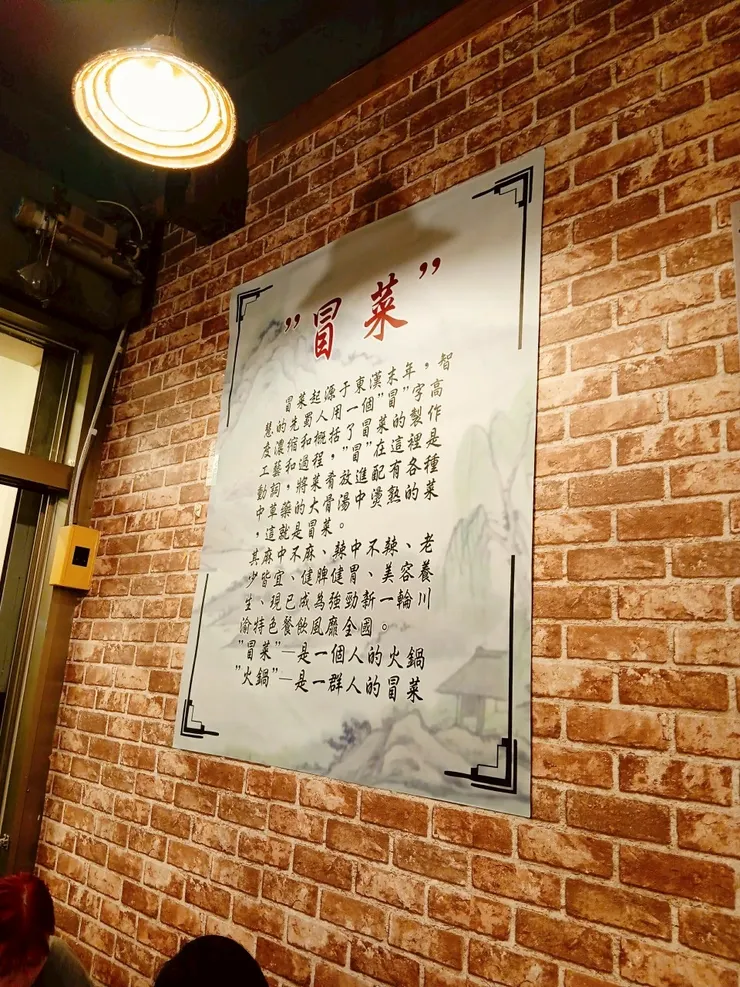 "冒菜"
冒菜起源于東漢末年，智
慧的先蜀人用一個"冒"字高
度濃縮和概括了冒菜的製作
工藝和過程，"冒"在這裡是
動詞，將菜肴放進配有各種
中草藥的大骨湯中燙熱的菜
，這就是冒菜。
其麻中不麻、辣中不辣、老
少皆宜、健脾健胃、美容養
生、現已成為強勁新一輪川
渝特色餐飲風靡全國。
"冒菜"—是一個人的火鍋
"火鍋"—是一群人的冒菜